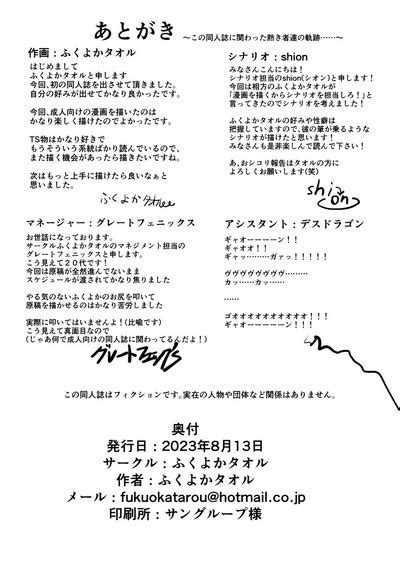 あとがき ～この同人誌に関わった熱き者達の軌跡……～
作画：ふくよかタオル
はじめまして
ふくよかタオルと申します
今回、初の同人誌を出させて頂きました。
自分の好みが出せてかなり良かったです。
今回、成人向けの漫画を描いたのは
かなり楽しく描けたのでよかったです。
TS物はかなり好きで
もうそういう系統ばかり読んでいるので、
また描く機会があったら描きたいですね。
次はもっと上手に描けたら良いなぁと
思いました。
ふくよかタオル
シナリオ：shion
みなさんこんにちは！
シナリオ担当のshion(シオン)と申します！
今回は相方のふくよかタオルが
「漫画を描くからシナリオ担当しろ！」と
言ってきたのでシナリオを考えました！
ふくよかタオルの好みや性癖は
把握していますので、彼の筆が乗るような
シナリオが描けたと思います！
みなさんも是非楽しんで読んで下さい！
あ、おシコリ報告はタオルの方に
よろしくお願いします(笑)
shion
マネージャー：グレートフェニックス
お世話になっております。
サークルふくよかタオルのマネジメント担当の
グレートフェニックスと申します。
こう見えて２０代です！
今回は原稿が全然進んでないまま
スケジュールが渡されてかなり焦りました
やる気のないふくよかのお尻を叩いて
原稿を描かせるのはかなり苦労しました
実際に叩いてはいませんよ！(比喩です)
こう見えて真面目なので
(じゃあ何で成人向けの同人誌に関わってるんだよ！)
アシスタント：デスドラゴン
ギャオーーーーン！！
ギャオオ！！
ギャッ………ガァッ！！！！！
ヴヴヴヴヴヴヴヴ………
カッ……カッ…
……
ゴオオオオオオオオオオ！！！
ギャオーーーーーン！！！
この同人誌はフィクションです。実在の人物や団体など関係はありません。
奥付
発行日：2023年8月13日
サークル：ふくよかタオル
作者：ふくよかタオル
メール：fukuokatarou@hotmail.co.jp
印刷所：サングループ様